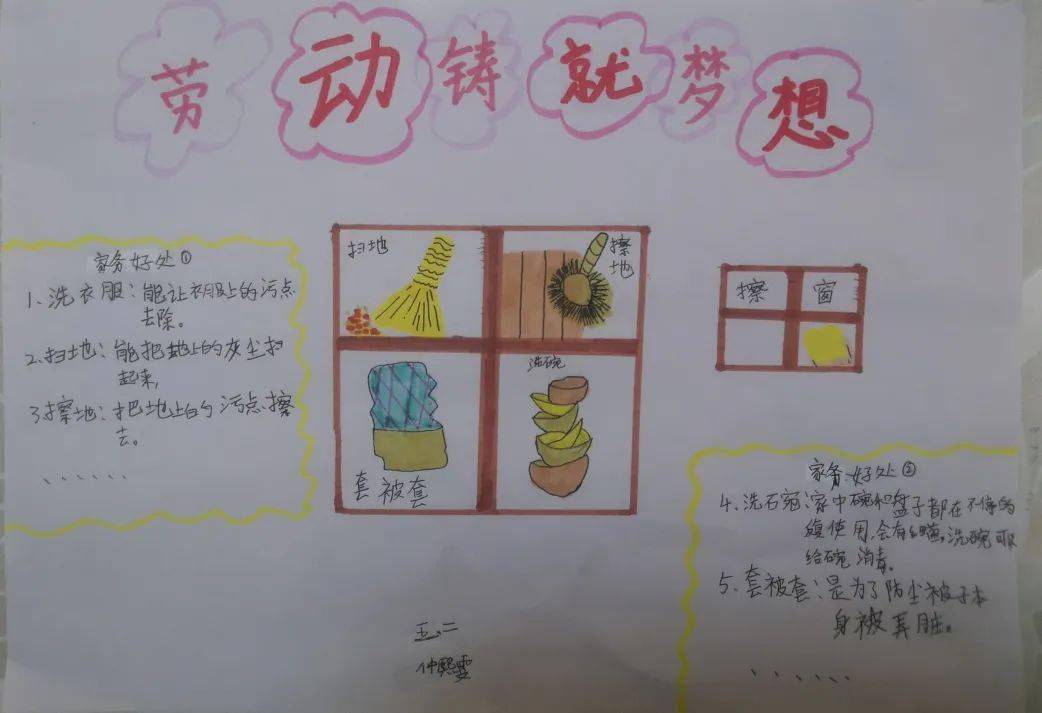 劳动铸就梦想
家务好处①
1、洗衣服：能让衣服上的污点
去除。
2、扫地：能把地上的灰尘扫
起来，
3、擦地：把地上的污点擦
去。
、、、、、、
扫地
擦地
套被套
洗碗
擦窗
家务好处②
4、洗碗：家中碗和盘子都在不停的
复使用，会有细菌，洗碗可以
给碗消毒。
5、套被套：是为了防尘被子本
身被弄脏。
、、、、、、
五、二
仲熙雯